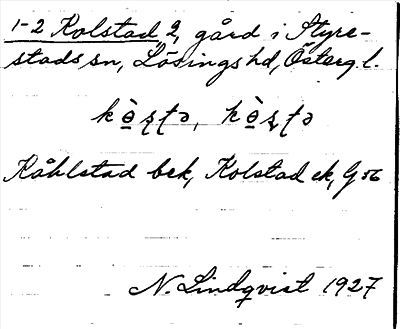 1-2 Kolstad 2, gård i Styre-
stads sn, Lösings hd, Österg. l.
Kåhlstad bek, Kolstad ek, G 56
N. Lindqvist 1927